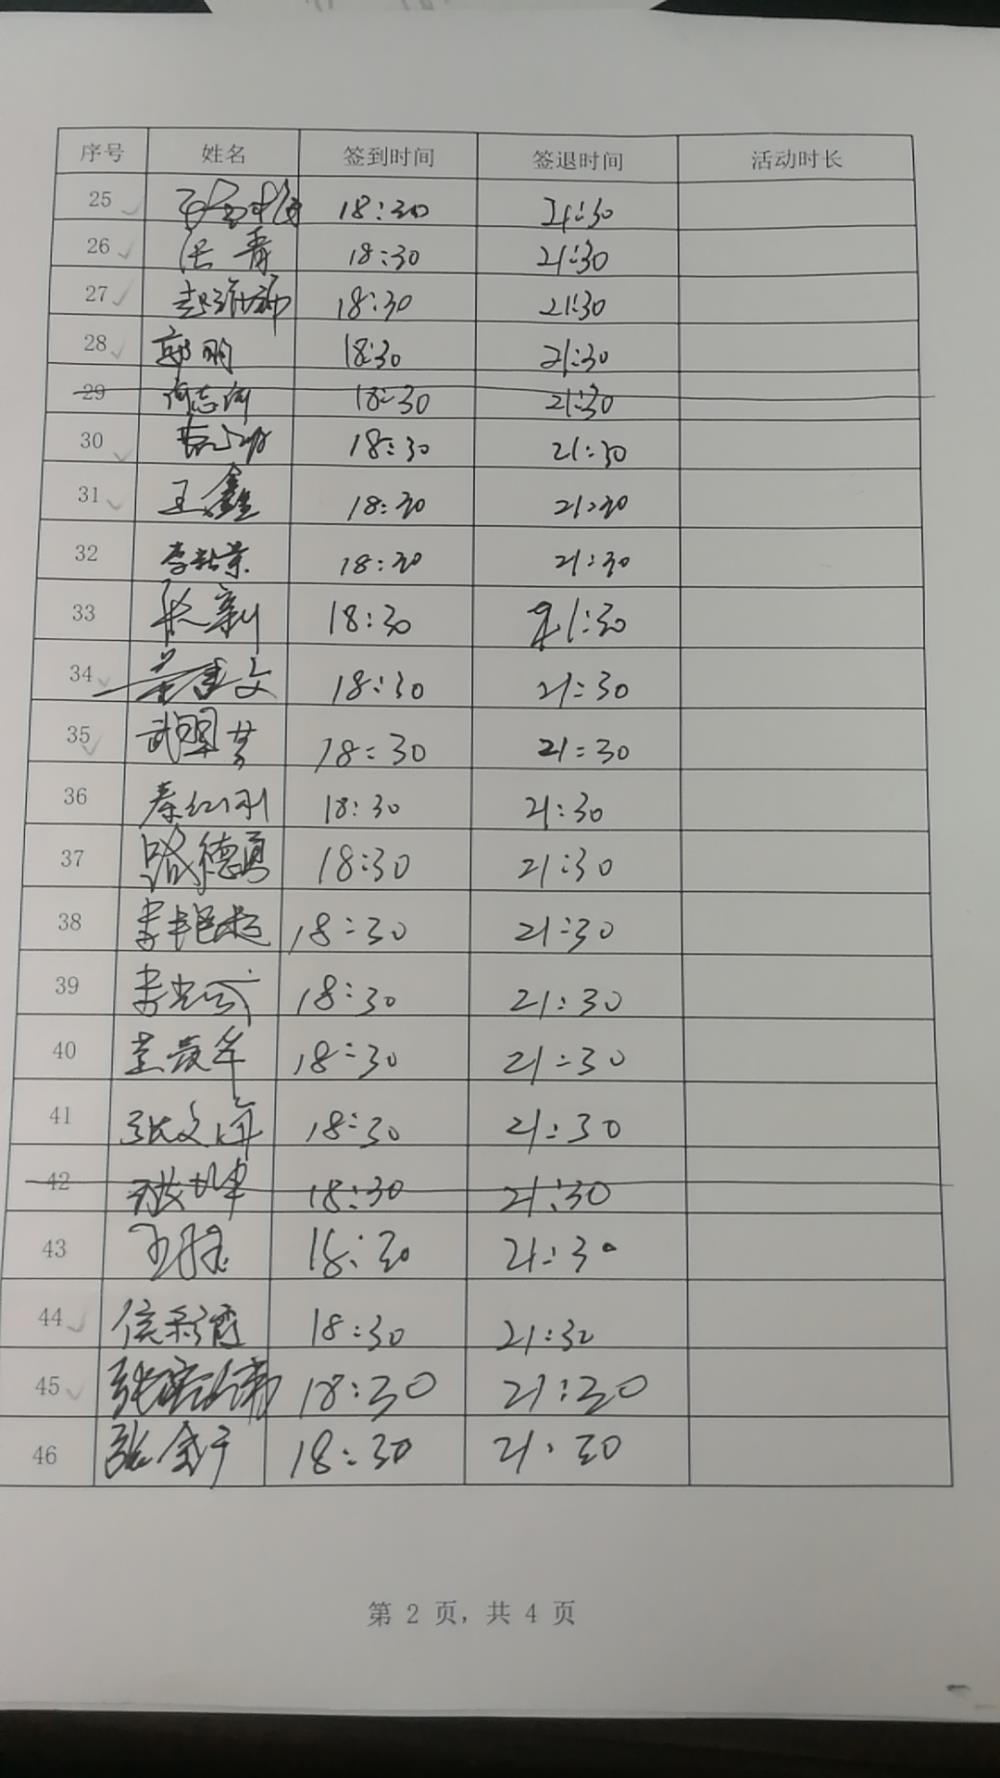 序号 姓名 签到时间 签退时间 活动时长
25 18:30 21:30
26 青 18:30 21:30
27 18:30 21:30
28 郭明 18:30 21:30
29 志 18:30 21:30
30 18:30 21:30
31 王鑫 18:30 21:30
32 李 18:30 21:30
33 张新 18:30 21:30
34 文 18:30 21:30
35 武 芳 18:30 21:30
36 秦红刚 18:30 21:30
37 路德勇 18:30 21:30
38 李 超 18:30 21:30
39 李 18:30 21:30
40 18:30 21:30
41 张文 18:30 21:30
42 18:30 21:30
43 王 18:30 21:30
44 侯彩霞 18:30 21:30
45 张 伟 18:30 21:30
46 张金 18:30 21:30
第 2 页，共 4 页